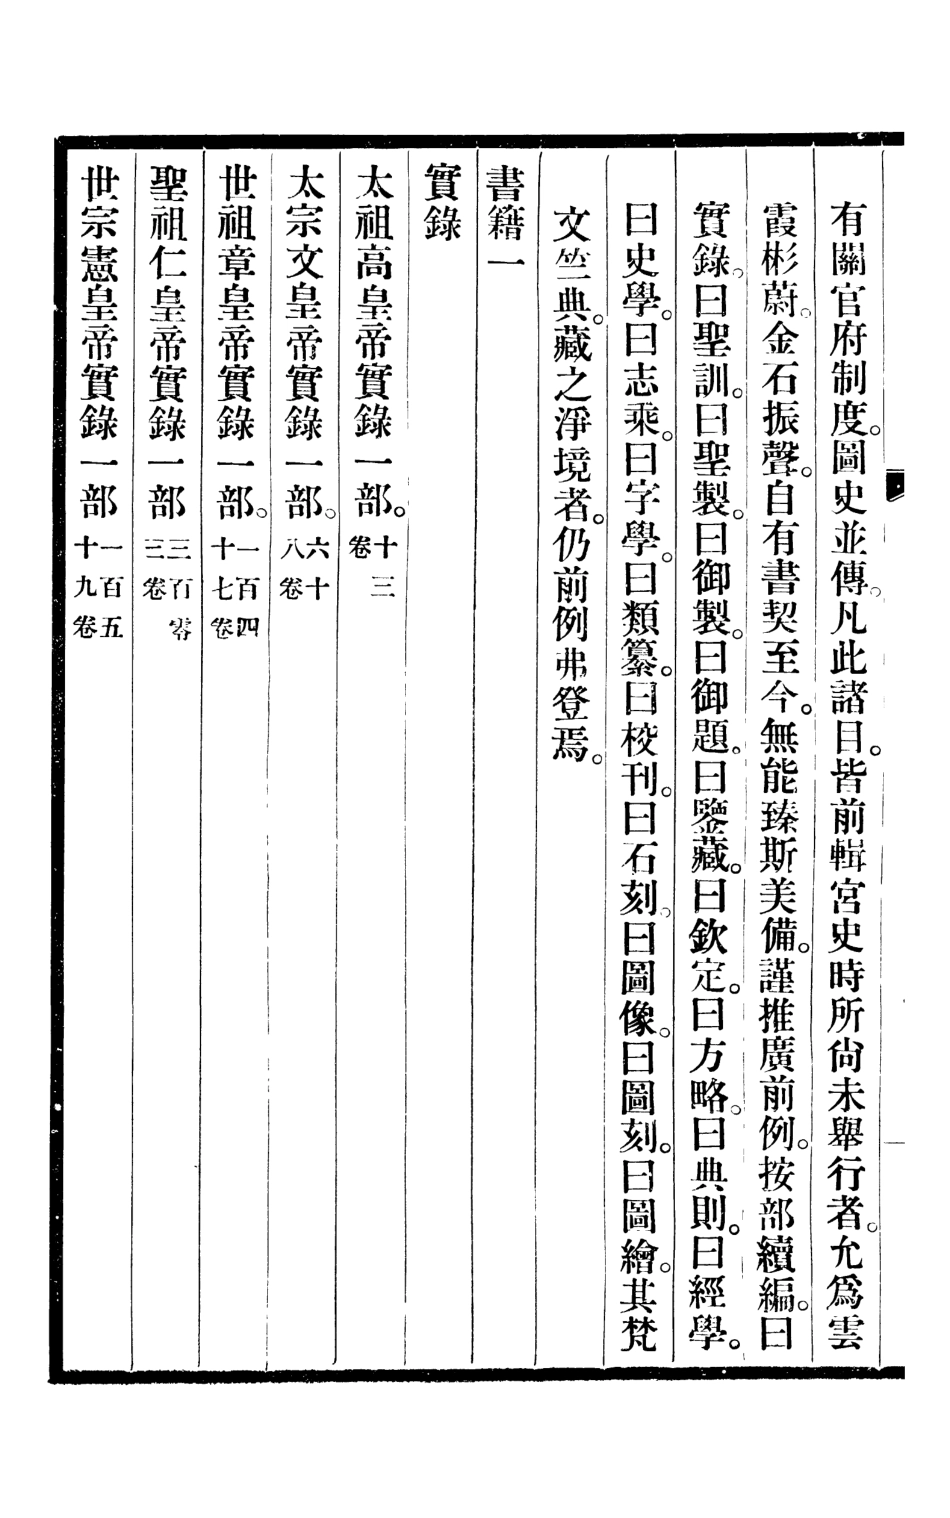 有關官府制度。圖史並傳。凡此諸目。皆前輯宮史時所尙未舉行者。允爲雲
霞彬蔚。金石振聲。自有書契至今。無能臻斯美備。謹推廣前例。按部續編。曰
實錄。曰聖訓。曰聖製。曰御製。曰御題。曰鑒藏。曰欽定。曰方略。曰典則。曰經學。
曰史學。曰志乘。曰字學。曰類纂。曰校刊。曰石刻。曰圖像。曰圖刻。曰圖繪。其梵
文竺典。藏之淨境者。仍前例弗登焉。
書籍一
實錄
太祖高皇帝實錄一部。十三卷
太宗文皇帝實錄一部。六十八卷
世祖章皇帝實錄一部。一百四十七卷
聖祖仁皇帝實錄一部三百零三卷
世宗憲皇帝實錄一部一百五十九卷